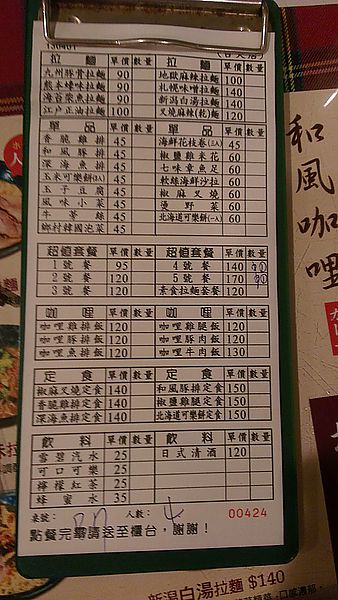 130401
拉麵 單價 數量 拉麵 單價 數量
九州豚骨拉麵 90 地獄麻辣拉麵 100
熊本味拉麵 90 札幌味噌拉麵 140
海苔柴魚拉麵 90 新潟白湯拉麵 140
江戶正油拉麵 100 叉燒麻辣(乾)麵 120
單品 單價 數量 單品 單價 數量
香脆雞排 45 海鮮花枝卷(2入) 45
和風豚排 45 椒鹽雞米花 60
深海魚排 45 七味章魚足 60
玉米可樂餅(2入) 45 軟絲海鮮沙拉 60
玉子豆腐 45 椒麻叉燒 60
風味小菜 45 燙野菜 60
牛蒡絲 45 北海道可樂餅(一入) 60
鄉村韓國泡菜 45
超值套餐 單價 數量 超值套餐 單價 數量
1號餐 95 4號餐 140
2號餐 120 5號餐 170
3號餐 120 素食拉麵套餐 120
咖哩 單價 數量 咖哩 單價 數量
咖哩雞排飯 120 咖哩雞腿飯 120
咖哩豚排飯 120 咖哩豚肉飯 120
咖哩魚排飯 120 咖哩牛肉飯 130
定食 單價 數量 定食 單價 數量
椒麻叉燒定食 140 和風豚排定食 150
香脆雞排定食 140 椒鹽雞腿定食 150
深海魚排定食 140 北海道可樂餅定食 150
飲料 單價 數量 飲料 單價 數量
雪碧汽水 25 日式清酒 120
可口可樂 25
檸檬紅茶 25
蜂蜜水 35
桌號: 人數: 4 00424
點餐完畢請送至櫃台，謝謝！
和風咖哩
新潟白湯拉麵 $140